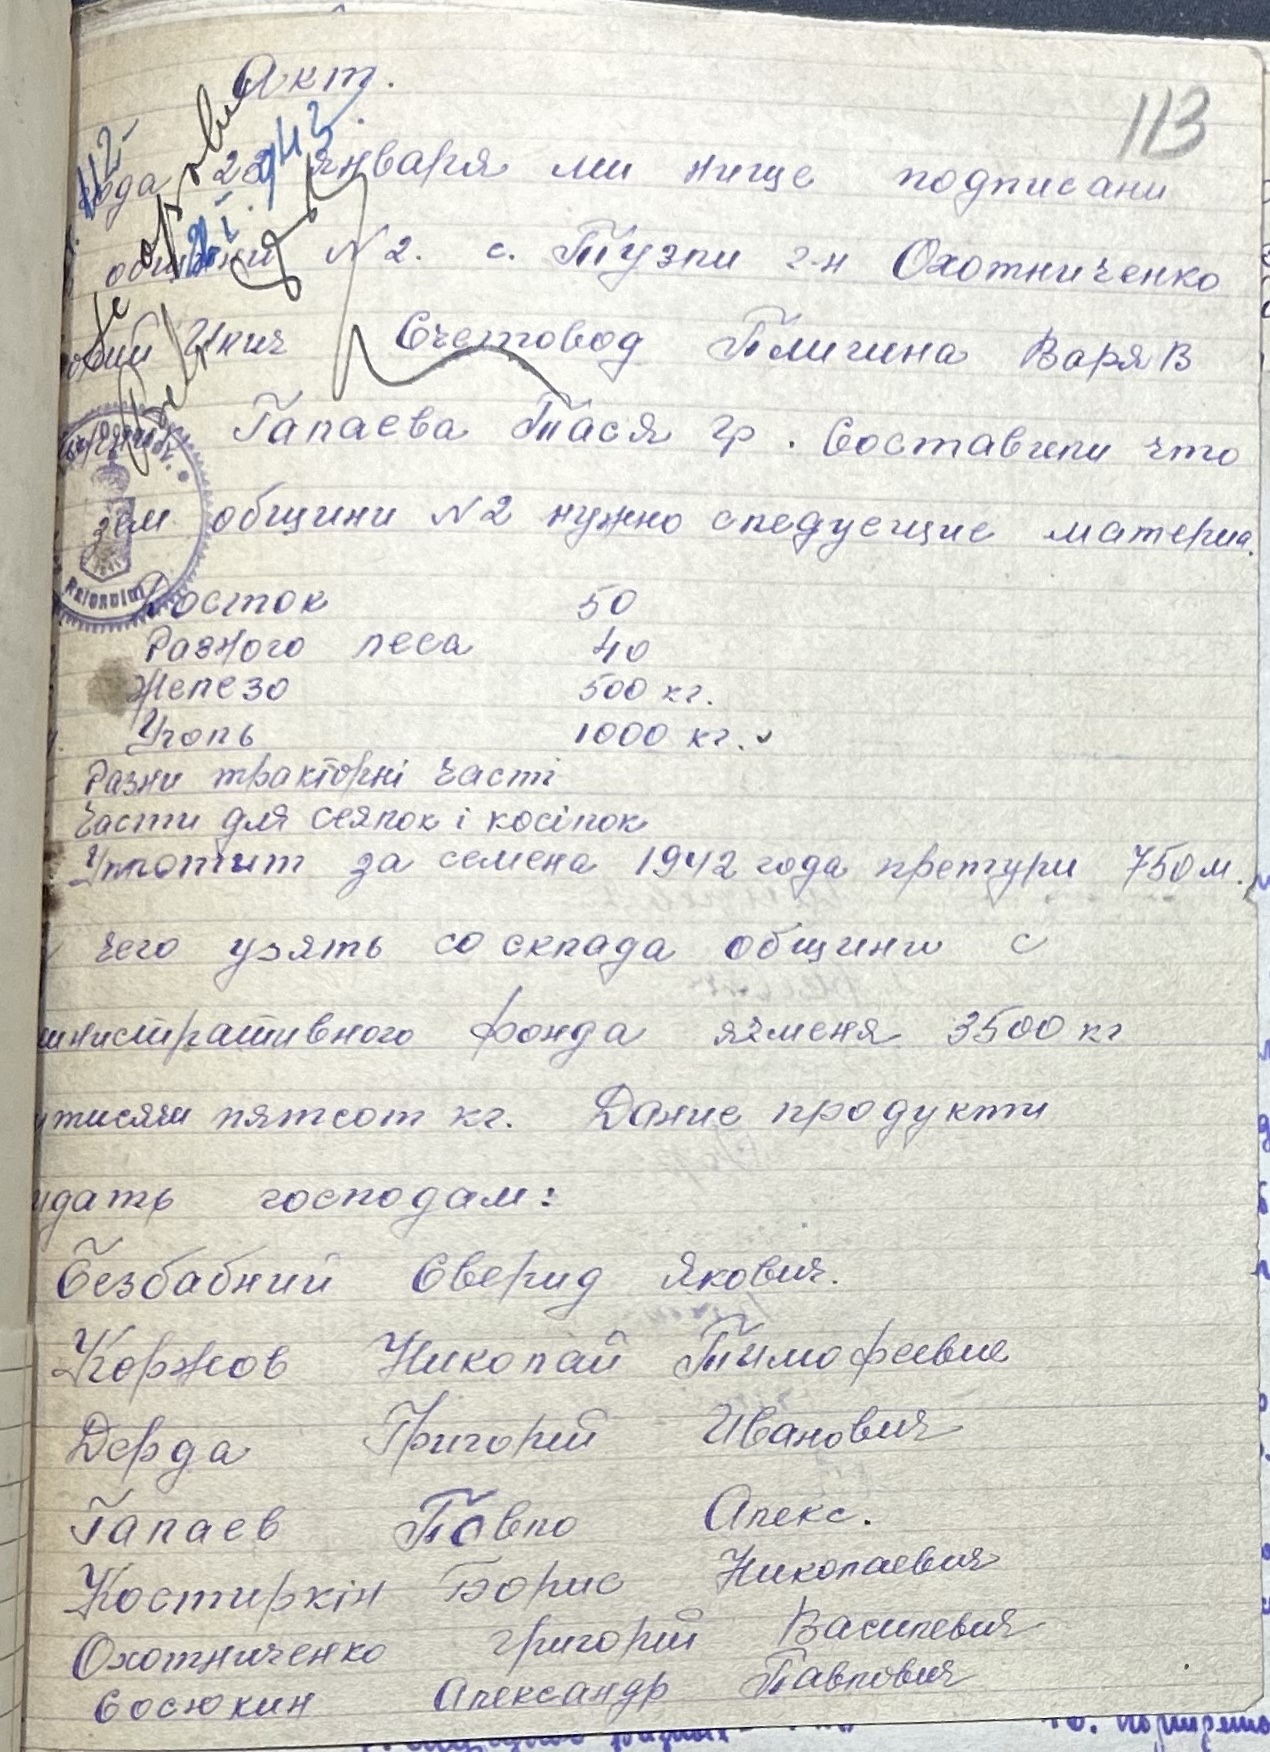 113
Акт.
года 22 января ми нище подписани
общини N2. с. Тузли г-н Охотниченко
Счетовод Пличина Варя В
Гапаева Тася гр. Составили что
зем общини N2 нужно следуещие материа
Досток 50
Разного леса 40
Железо 500 кг.
Уголь 1000 кг.
Разни тракторні часті
Части для сеялок і косілок
за семена 1942 года претури 750 м.
чего узять со склада общини с
министративного фонда ячменя 3500 кг
тисячи пятсот кг. Дание продукти
идать господам:
Безбабний Сверид Якович.
Коржов Николай Тимофеевич
Дерда Григорий Иванович
Гапаев Павло Алекс.
Костиркін Борис Николаевич
Охотниченко Григорий Василевич
Сосюкин Александр Павлович